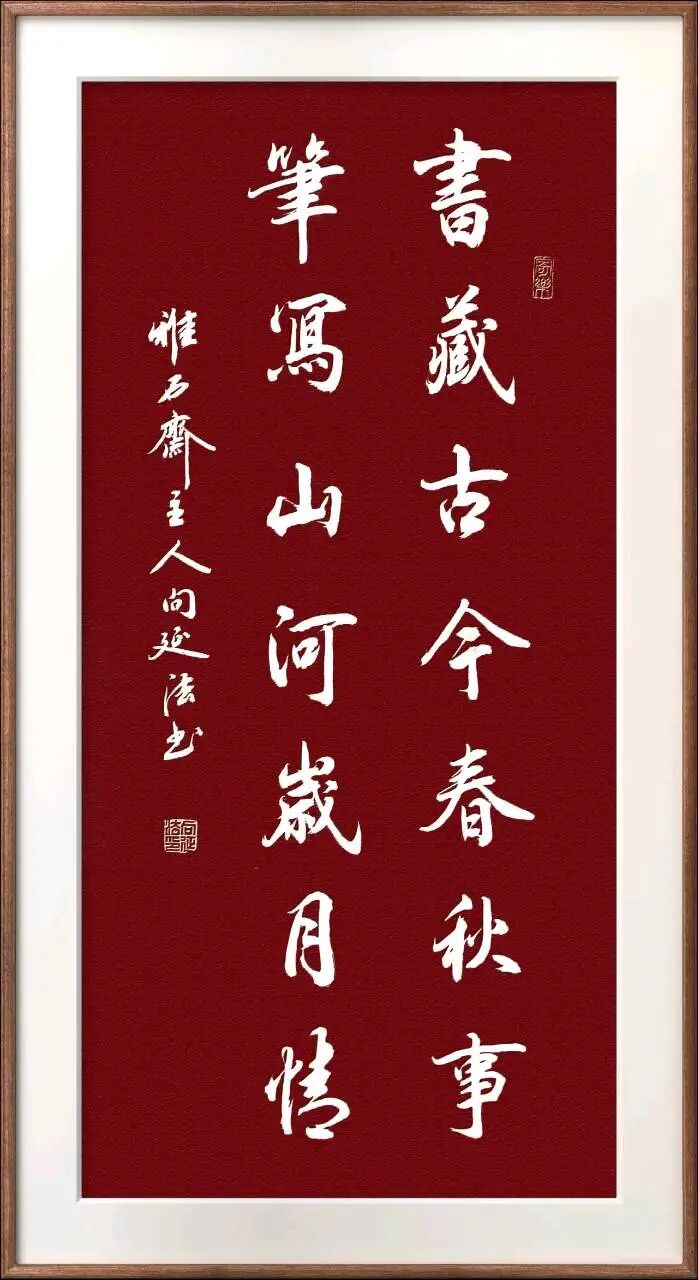 書藏古今春秋事
筆寫山河歲月情
雅石齋主人向延法書